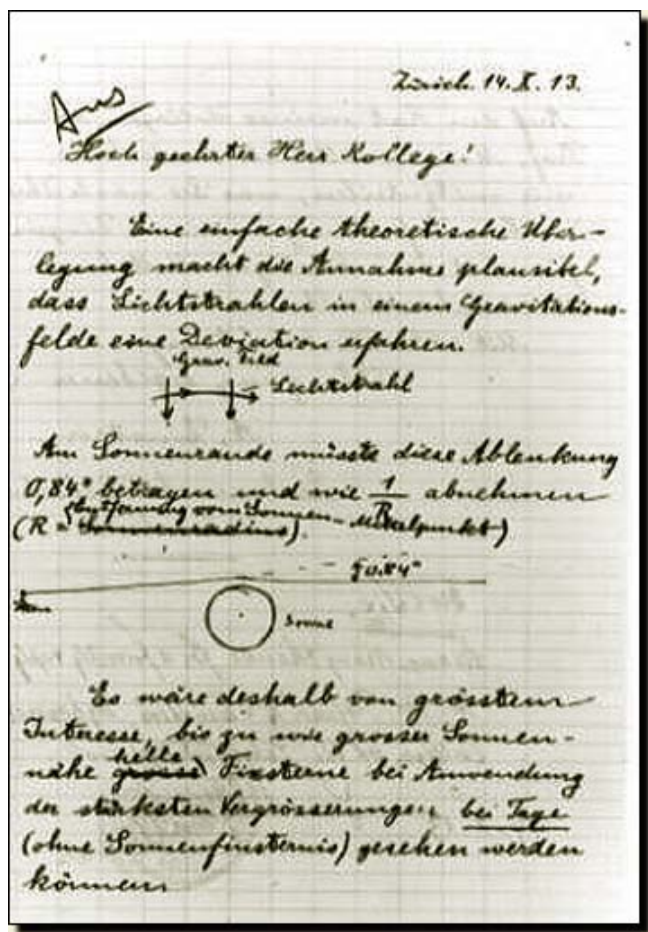 Zürich. 14. X. 13.
Aus
Hoch geehrter Herr Kollege!
Eine einfache theoretische Über-
legung macht die Annahme plausibel,
dass Lichtstrahlen in einem Gravitations-
felde eine Deviation erfahren.
Grav. Feld
Lichtstrahl
Am Sonnenrande müsste diese Ablenkung
0,84" betragen und wie 1/R abnehmen
(R = Sonnenradius) Entfernung vom Sonnen-Mittelpunkt)
0.84"
Sonne
Es wäre deshalb von grösstem
Interesse, bis zu wie grosser Sonnen-
helle
nähe grosse Fixsterne bei Anwendung
der stärksten Vergrösserungen bei Tage
(ohne Sonnenfinsternis) gesehen werden
können.